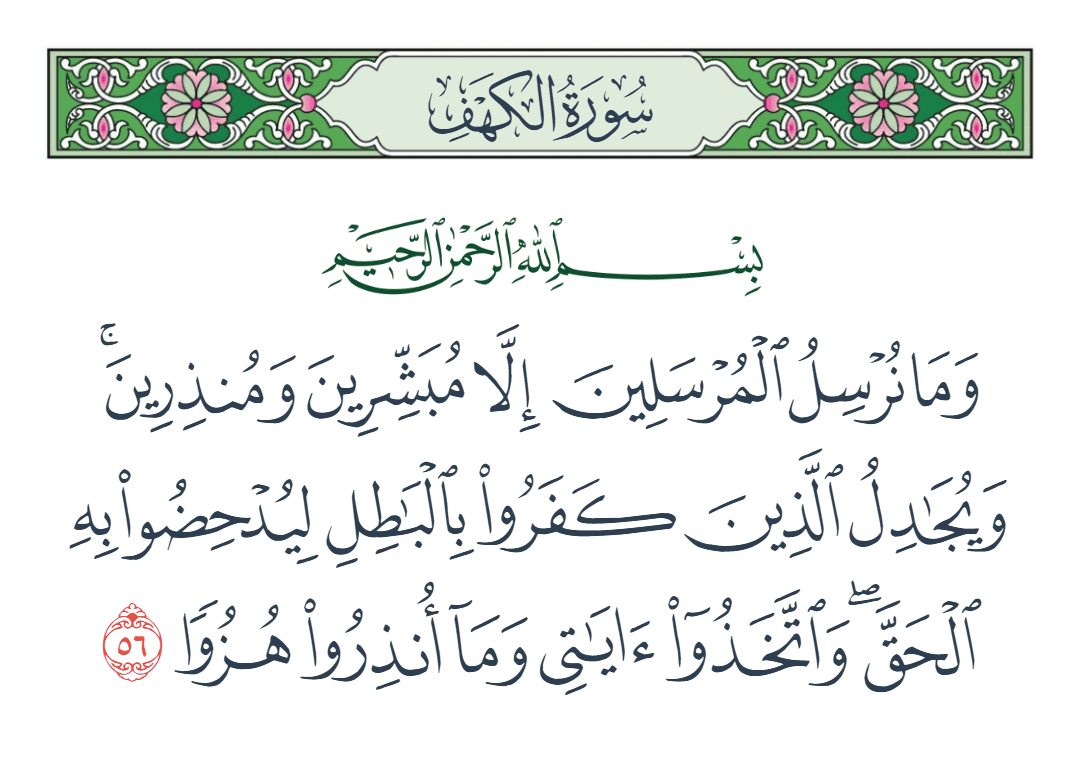 سُورَةُ الكَهْفِ
بِسْمِ ٱللَّهِ ٱلرَّحْمَٰنِ ٱلرَّحِيمِ
وَمَا نُرْسِلُ ٱلْمُرْسَلِينَ إِلَّا مُبَشِّرِينَ وَمُنذِرِينَ ۚ
وَيُجَـٰدِلُ ٱلَّذِينَ كَفَرُوا۟ بِٱلْبَـٰطِلِ لِيُدْحِضُوا۟ بِهِ
ٱلْحَقَّ ۖ وَٱتَّخَذُوٓا۟ ءَايَـٰتِى وَمَآ أُنذِرُوا۟ هُزُوًا ٥٦